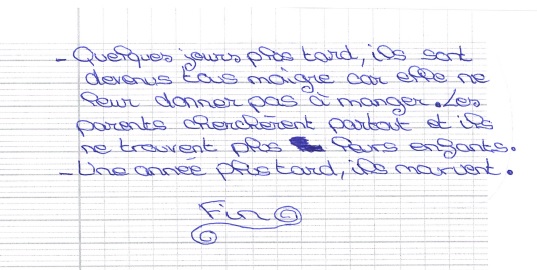 - Quelques jours plus tard, ils sont
devenus tous maigre car elle ne
leur donner pas à manger. Les
parents cherchèrent partout et ils
ne trouvent plus leurs enfants.
- Une année plus tard, ils meurent.
Fin